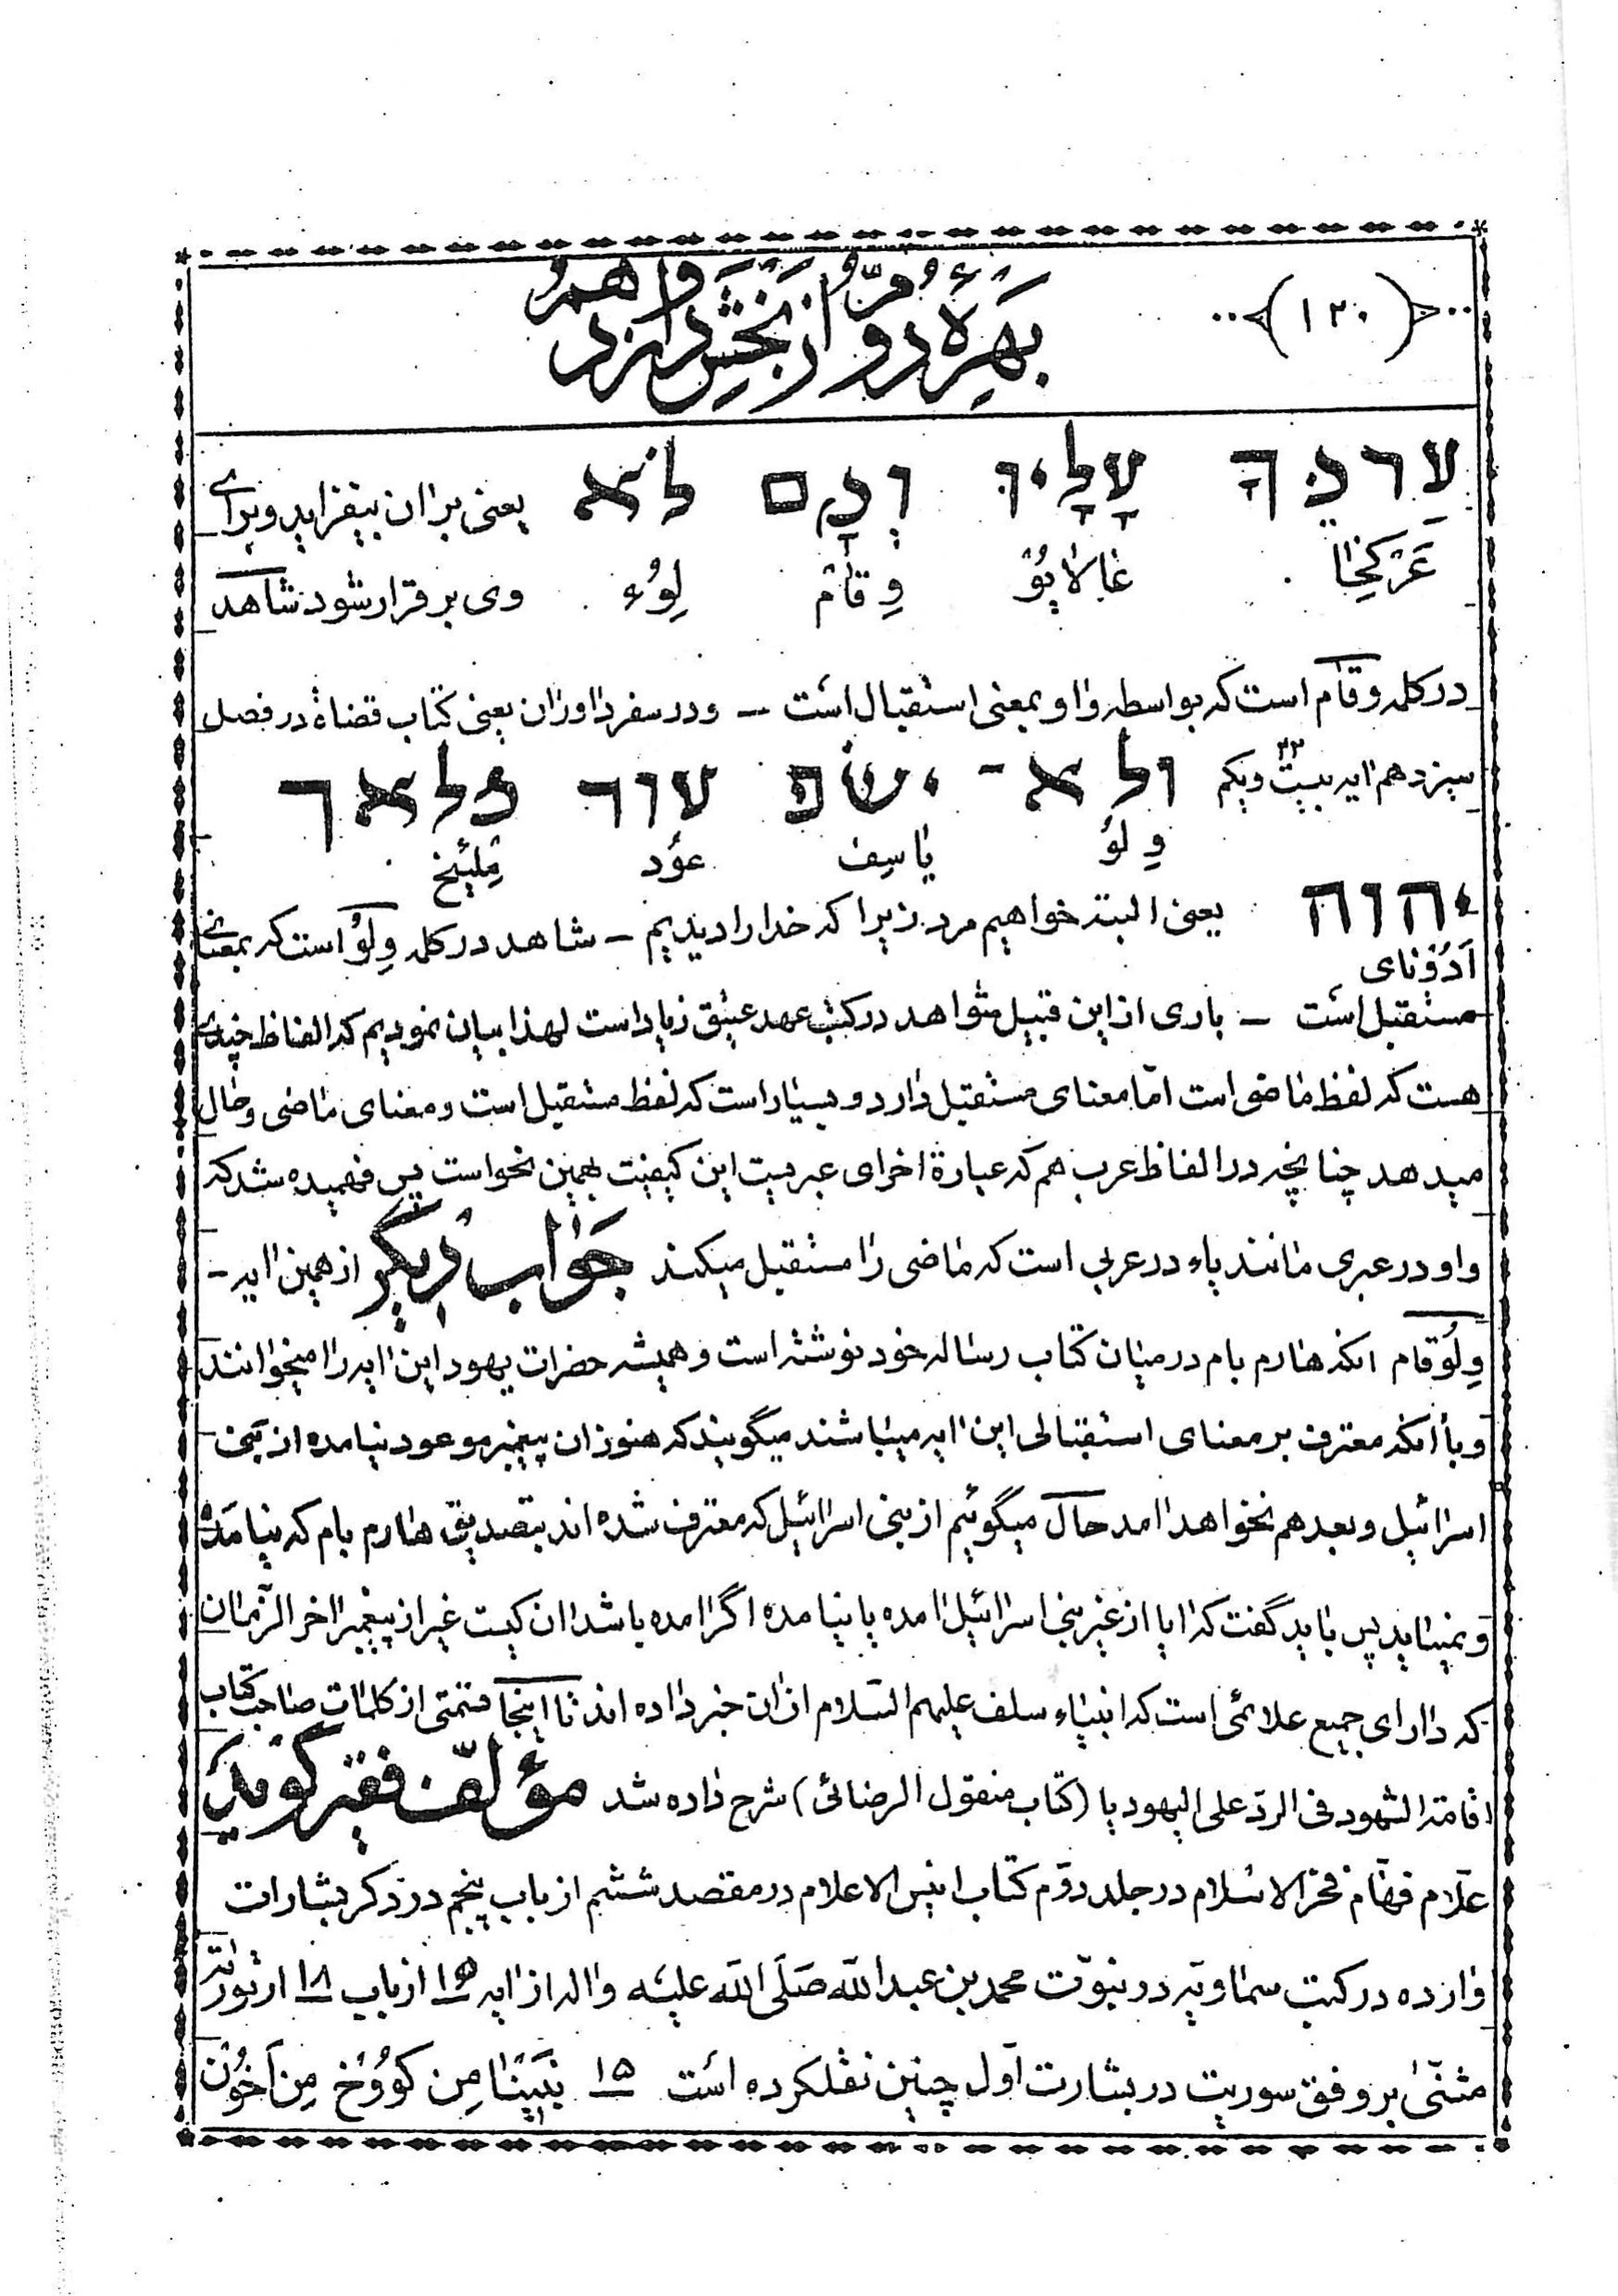 ﴿۱۲۰﴾
بهرهٔ دوّم از بخش دوازدهم
עֶרְכְּךָ עָלָיו וְקָם לוֹא یعنی بران بیفزاید و برای
عَرْکِخَا عَالایوْ وِقَامْ لِوُء وی برقرار شود شاهد
در کلمه وقام است که بواسطه واو بمعنی استقبال است – و در سفر داوران یعنی کتاب قضاة در فصل
سیزدهم ایه بیست ۲۲ ویکم ולא־ יסף עוד מלאך
وِلوُ یاسِف عوُد مَلئِیخ
יהוה یعنی البته خواهیم مرد زیرا که خدا را دیدیم – شاهد در کلمه وِلوُ است که بمعنای
اَدُوْنای
مستقبل است – باری از این قبیل شواهد در کتب عهد عتیق زیاد است لهذا بیان نمودیم که الفاظ چندی
هست که لفظ ماضی است امّا معنای مستقبل دارد و بسیار است که لفظ مستقبل است و معنای ماضی و حال
میدهد چنانچه در الفاظ عرب هم که عبارة اخرای عبریست این کیفیت بهمین نحو است پس فهمیده شد که
واو در عبری مانند یاء در عربی است که ماضی را مستقبل میکند جواب دیگر از همین ایه –
وِلُوقام انکه هارم بام در میان کتاب رساله خود نوشته است و همیشه حضرات یهود این ایه را میخوانند
و با انکه معترف بر معنای استقبالی این ایه میباشند میگویند که هنوز ان پیغمبر موعود نیامده از بنی
اسرائیل و بعد هم نخواهد امد حال میگوئیم از بنی اسرائیل که معترف شده اند بتصدیق هارم بام که نیامده
و نمیاید پس باید گفت که ایا از غیر بنی اسرائیل امده یا نیامده اگر امده باشد ان کیست غیر از پیغمبر اخر الزمان
که دارای جمیع علائمی است که انبیاء سلف علیهم السّلام از ان خبر داده اند تا اینجا قسمتی از کلمات صاحب کتاب
اقامة الشهود فی الردّ علی الیهود یا (کتاب منقول الرضائی) شرح داده شد مؤلّف فقیر گوید
علّام فهّام فخر الاسلام در جلد دوّم کتاب انیس الاعلام در مقصد ششم از باب پنجم در ذکر بشارات
وارده در کتب سماویّه در نبوّت محمد بن عبد الله صَلّی الله علیه واله از ایه ۱۵ از باب ۱۸ از تورات
مثنّی بر وفق سوریت در بشارت اوّل چنین نقلکرده است ۱۵ نبیّنا مِن کوُوُخ مِن اَخُون